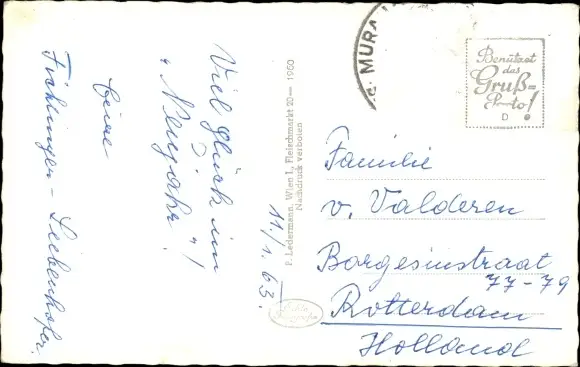 Viel Glück im
"Neujahr"!
11/1. 63.
P. Ledermann, Wien I., Fleischmarkt 20 — 1960
Nachdruck verboten
MURA
Benützet
das
Gruß-
Porto!
D
Familie
v. Valderen
Borgesiustraat
77-79
Rotterdam
Holland